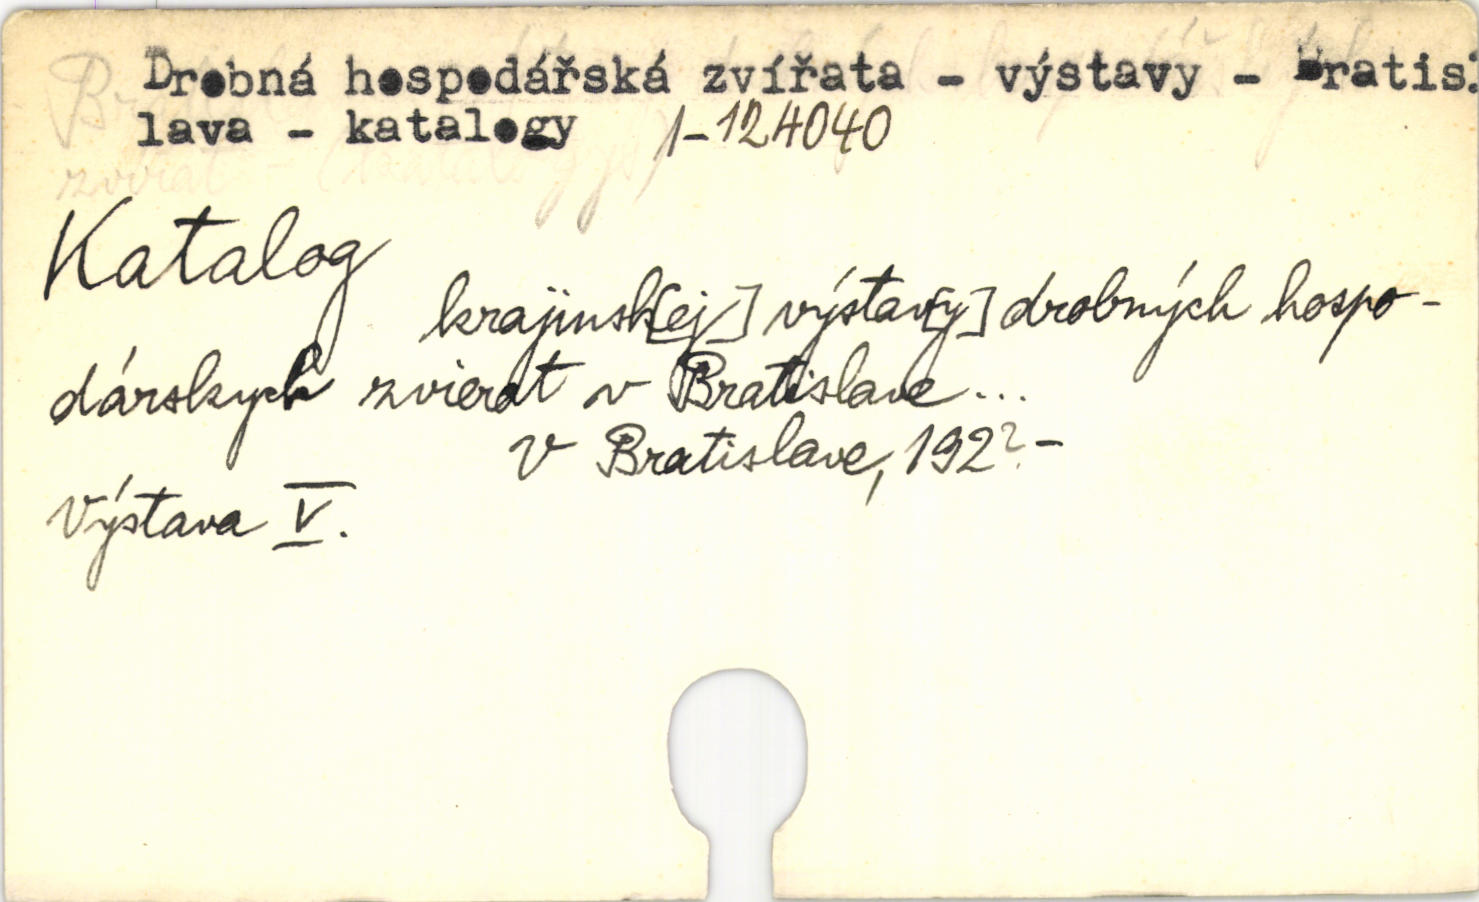 Drobná hospodářská zvířata - výstavy - Bratis-
lava - katalogy 1-124040
Katalog
krajinsk[ej] výstav[y] drobných hospo-
dárskych zvierat v Bratislave...
V Bratislave, 192?-
Výstava V.